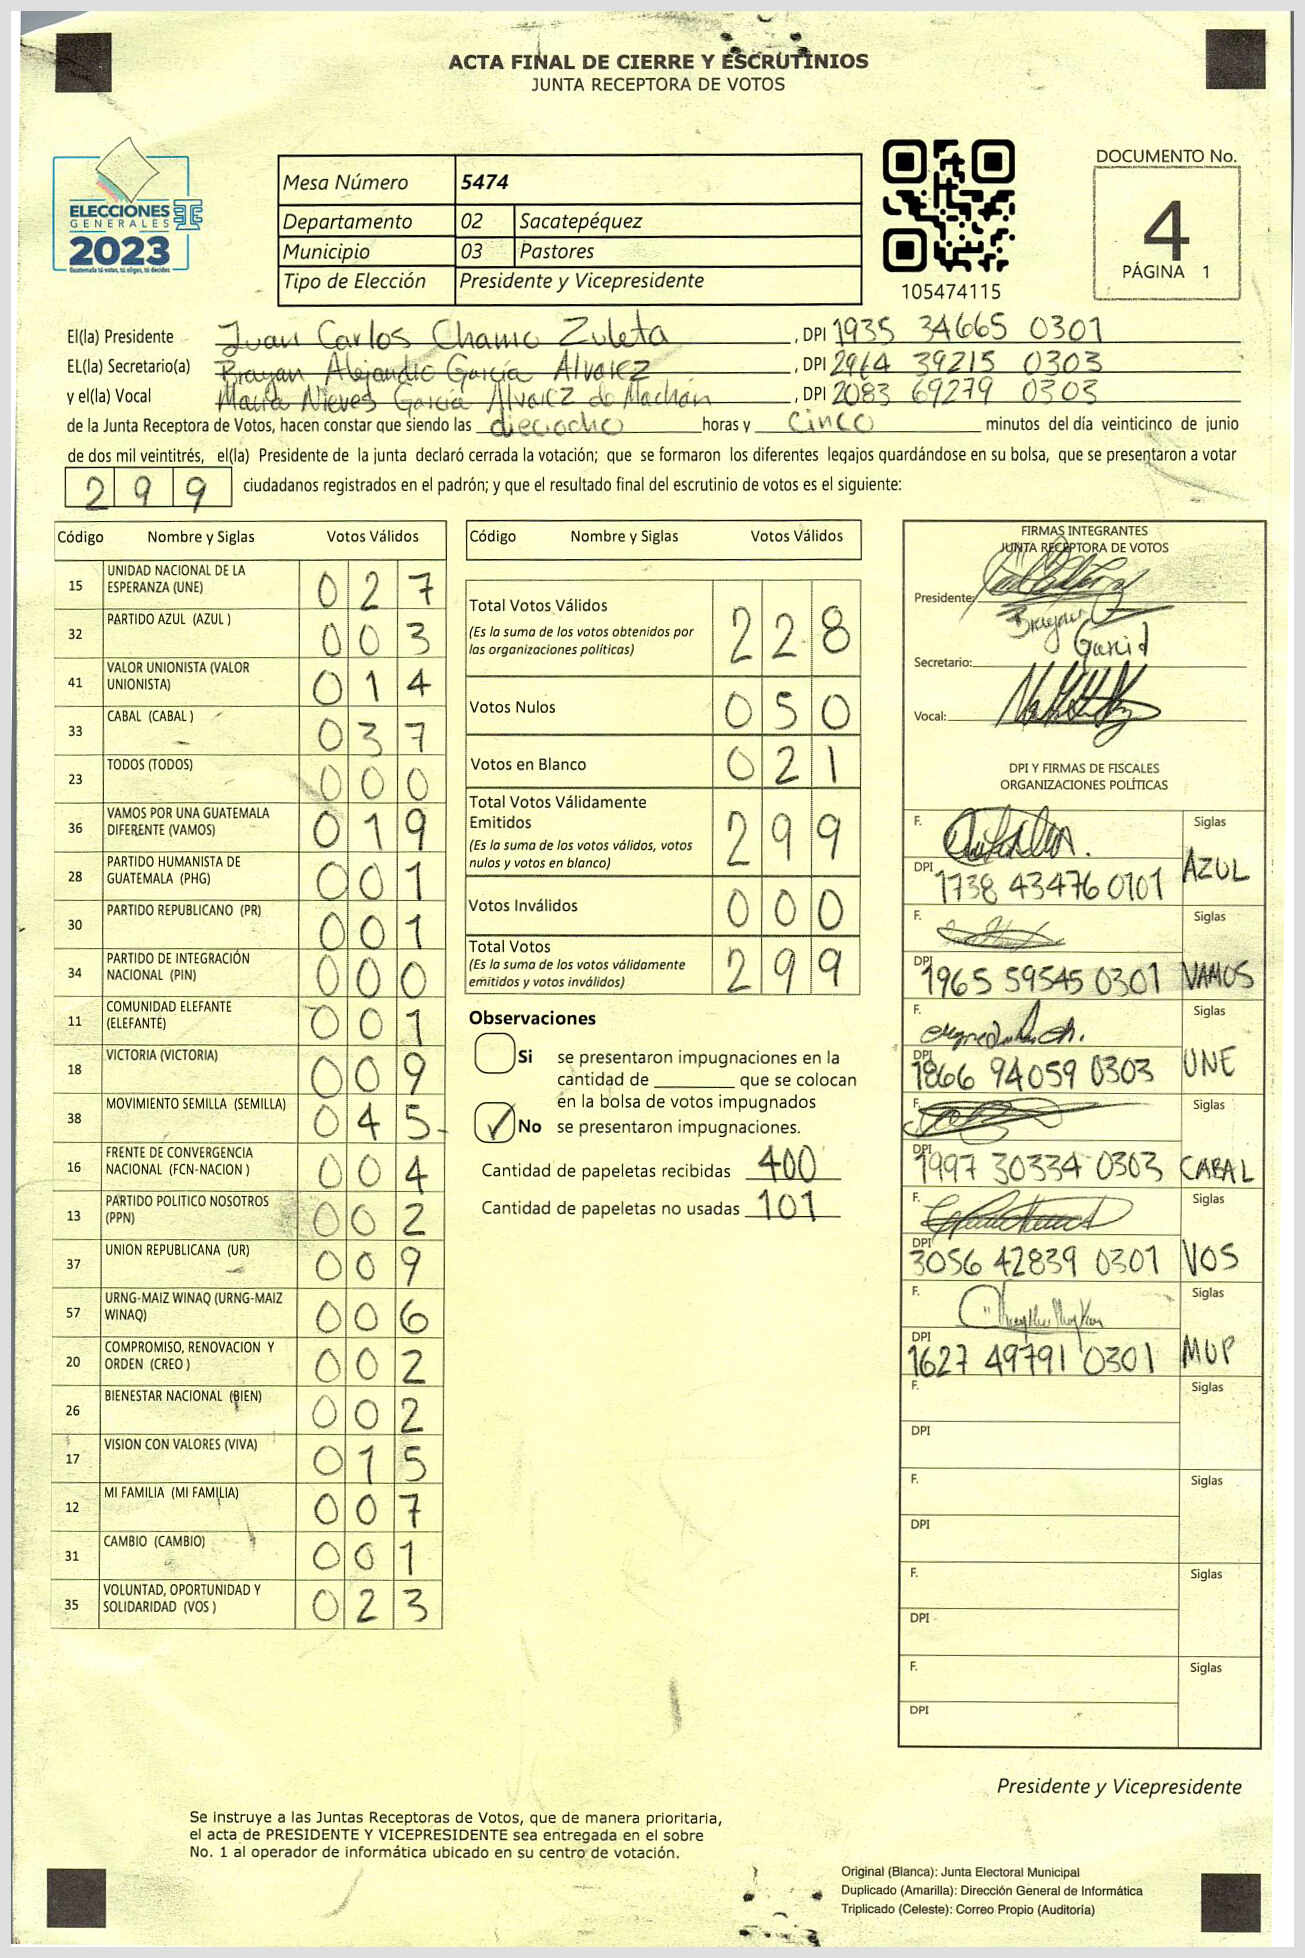 ACTA FINAL DE CIERRE Y ESCRUTINIOS
JUNTA RECEPTORA DE VOTOS
ELECCIONES
GENERALES
2023
Guatemala tú votas, tú eliges, tú decides
Mesa Número 5474
Departamento 02 Sacatepéquez
Municipio 03 Pastores
Tipo de Elección Presidente y Vicepresidente
105474115
DOCUMENTO No.
4
PÁGINA 1
El(la) Presidente Juan Carlos Chamo Zuleta , DPI 1935 34665 0301
EL(la) Secretario(a) Brayan Alejandro García Alvarez , DPI 2964 39215 0303
y el(la) Vocal María Nieves García Alvarez de Machán , DPI 2083 69279 0303
de la Junta Receptora de Votos, hacen constar que siendo las dieciocho horas y cinco minutos del día veinticinco de junio
de dos mil veintitrés, el(la) Presidente de la junta declaró cerrada la votación; que se formaron los diferentes legajos quardándose en su bolsa, que se presentaron a votar
299 ciudadanos registrados en el padrón; y que el resultado final del escrutinio de votos es el siguiente:
Código Nombre y Siglas Votos Válidos
15 UNIDAD NACIONAL DE LA ESPERANZA (UNE) 027
32 PARTIDO AZUL (AZUL ) 003
41 VALOR UNIONISTA (VALOR UNIONISTA) 014
33 CABAL (CABAL ) 037
23 TODOS (TODOS) 000
36 VAMOS POR UNA GUATEMALA DIFERENTE (VAMOS) 019
28 PARTIDO HUMANISTA DE GUATEMALA (PHG) 001
30 PARTIDO REPUBLICANO (PR) 001
34 PARTIDO DE INTEGRACIÓN NACIONAL (PIN) 000
11 COMUNIDAD ELEFANTE (ELEFANTE) 001
18 VICTORIA (VICTORIA) 009
38 MOVIMIENTO SEMILLA (SEMILLA) 045
16 FRENTE DE CONVERGENCIA NACIONAL (FCN-NACION ) 004
13 PARTIDO POLITICO NOSOTROS (PPN) 002
37 UNION REPUBLICANA (UR) 009
57 URNG-MAIZ WINAQ (URNG-MAIZ WINAQ) 006
20 COMPROMISO, RENOVACION Y ORDEN (CREO ) 002
26 BIENESTAR NACIONAL (BIEN) 002
17 VISION CON VALORES (VIVA) 015
12 MI FAMILIA (MI FAMILIA) 007
31 CAMBIO (CAMBIO) 001
35 VOLUNTAD, OPORTUNIDAD Y SOLIDARIDAD (VOS ) 023
Código Nombre y Siglas Votos Válidos
Total Votos Válidos 228
(Es la suma de los votos obtenidos por
las organizaciones políticas)
Votos Nulos 050
Votos en Blanco 021
Total Votos Válidamente
Emitidos 299
(Es la suma de los votos válidos, votos
nulos y votos en blanco)
Votos Inválidos 000
Total Votos 299
(Es la suma de los votos válidamente
emitidos y votos inválidos)
Observaciones
Si se presentaron impugnaciones en la
cantidad de ________ que se colocan
en la bolsa de votos impugnados
No se presentaron impugnaciones.
Cantidad de papeletas recibidas 400
Cantidad de papeletas no usadas 101
FIRMAS INTEGRANTES
JUNTA RECEPTORA DE VOTOS
Presidente:
Brayan
García
Secretario:
Vocal:
DPI Y FIRMAS DE FISCALES
ORGANIZACIONES POLÍTICAS
F. Siglas
DPI 1738 43476 0101 AZUL
F. Siglas
DPI 1965 59545 0301 VAMOS
F. Siglas
DPI 1866 94059 0303 UNE
F. Siglas
DPI 1997 30334 0303 CABAL
F. Siglas
DPI 3056 42839 0301 VOS
F. Siglas
DPI 1627 49791 0301 MLP
F. Siglas
DPI
F. Siglas
DPI
F. Siglas
DPI
F. Siglas
DPI
Presidente y Vicepresidente
Se instruye a las Juntas Receptoras de Votos, que de manera prioritaria,
el acta de PRESIDENTE Y VICEPRESIDENTE sea entregada en el sobre
No. 1 al operador de informática ubicado en su centro de votación.
Original (Blanca): Junta Electoral Municipal
Duplicado (Amarilla): Dirección General de Informática
Triplicado (Celeste): Correo Propio (Auditoría)